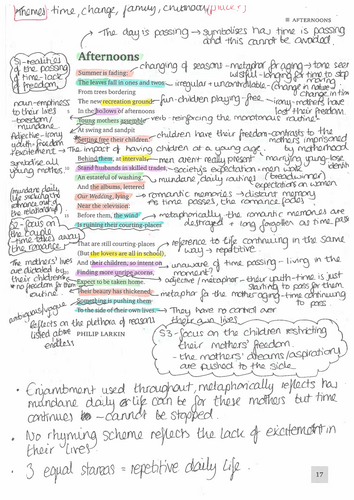 Themes: time, change, family, childhood (places)
AFTERNOONS
The day is passing → symbolises how time is passing
and this cannot be avoided.
S1 - realities
of the passing
of time - lack
of freedom.
Afternoons
changing of seasons - metaphor for aging - tone seem
wistful - longing for time to stop
Summer is fading:
The leaves fall in ones and twos
irregular - uncontrollable - change in nature
change in time
From trees bordering
The new recreation ground
fun - children playing - free
irony - mothers have
lost their freedom.
noun - emptiness
to their lives
freedom/
mundane.
In the hollows of afternoons
Young mothers assemble
verb - reinforcing the monotonous routine
At swing and sandpit
Setting free their children.
children have their freedom - contrasts to the mothers
imprisoned
by motherhood
Adjective - irony
youth = freedom
/excitement.
The impact of having children at a young age.
symbolise all
young mothers
Behind them, at intervals,
men aren't really present
marrying young - lose
identity
Stand husbands in skilled trades,
society's expectation - men work
An estateful of washing
mundane daily routines (breadwinner)
expectations on women
And the albums, lettered
Our Wedding, lying
romantic memories → distant memory
as time passes, the romance fades
Near the television:
Before them, the wind
metaphorically the romantic memories are
destroyed & long forgotten as time pass
Is ruining their courting-places
S2 - focus on
time takes
away
the romance
That are still courting-places
reference to life continuing in the same
way - repetitive.
(But the lovers are all in school),
And their children, so intent on
unaware of time passing - living in the
moment?
Finding more unripe acorns,
adjective / metaphor - their youth - time is just
starting to pass for them
Expect to be taken home.
The mothers' lives
are dictated by
their children
no freedom from this
routine
Their beauty has thickened.
metaphor for the mother aging - time continuing
to pass
Something is pushing them
To the side of their own lives.
They have no control over
their own lives
ambiguous/vague
reflects on the plethora of reasons
listed above
endless
PHILIP LARKIN
S3 - focus on the children restricting
their mothers' freedom.
- the mothers' dreams/aspirations
are pushed to the side.
• Enjambment used throughout, metaphorically reflects how
mundane daily life can be for these mothers but time
continues - cannot be stopped.
• No rhyming scheme reflects the lack of excitement in
their lives
• 3 equal stanzas = repetitive daily life.
17